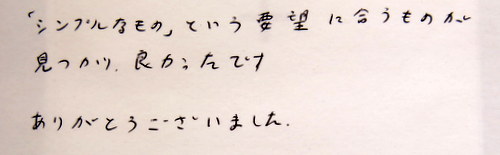 「シンプルなもの」という要望に合うものが
見つかり、良かったです
ありがとうございました.